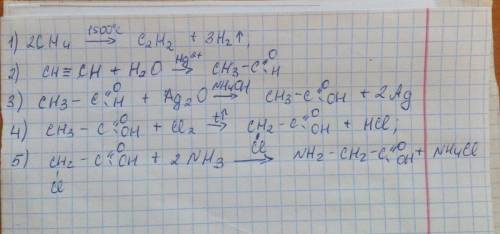 1) 2CH4 1500°C → C2H2 + 3H2↑;
2) CH≡CH + H2O Hg2+ → CH3-C=O H
3) CH3-C=O H + Ag2O NH4OH → CH3-C=O OH + 2Ag
4) CH3-C=O OH + Cl2 → CH2-C=O OH + HCl;
Cl
5) CH2-C=O OH + 2NH3 → NH2-CH2-C=O OH + NH4Cl
Cl